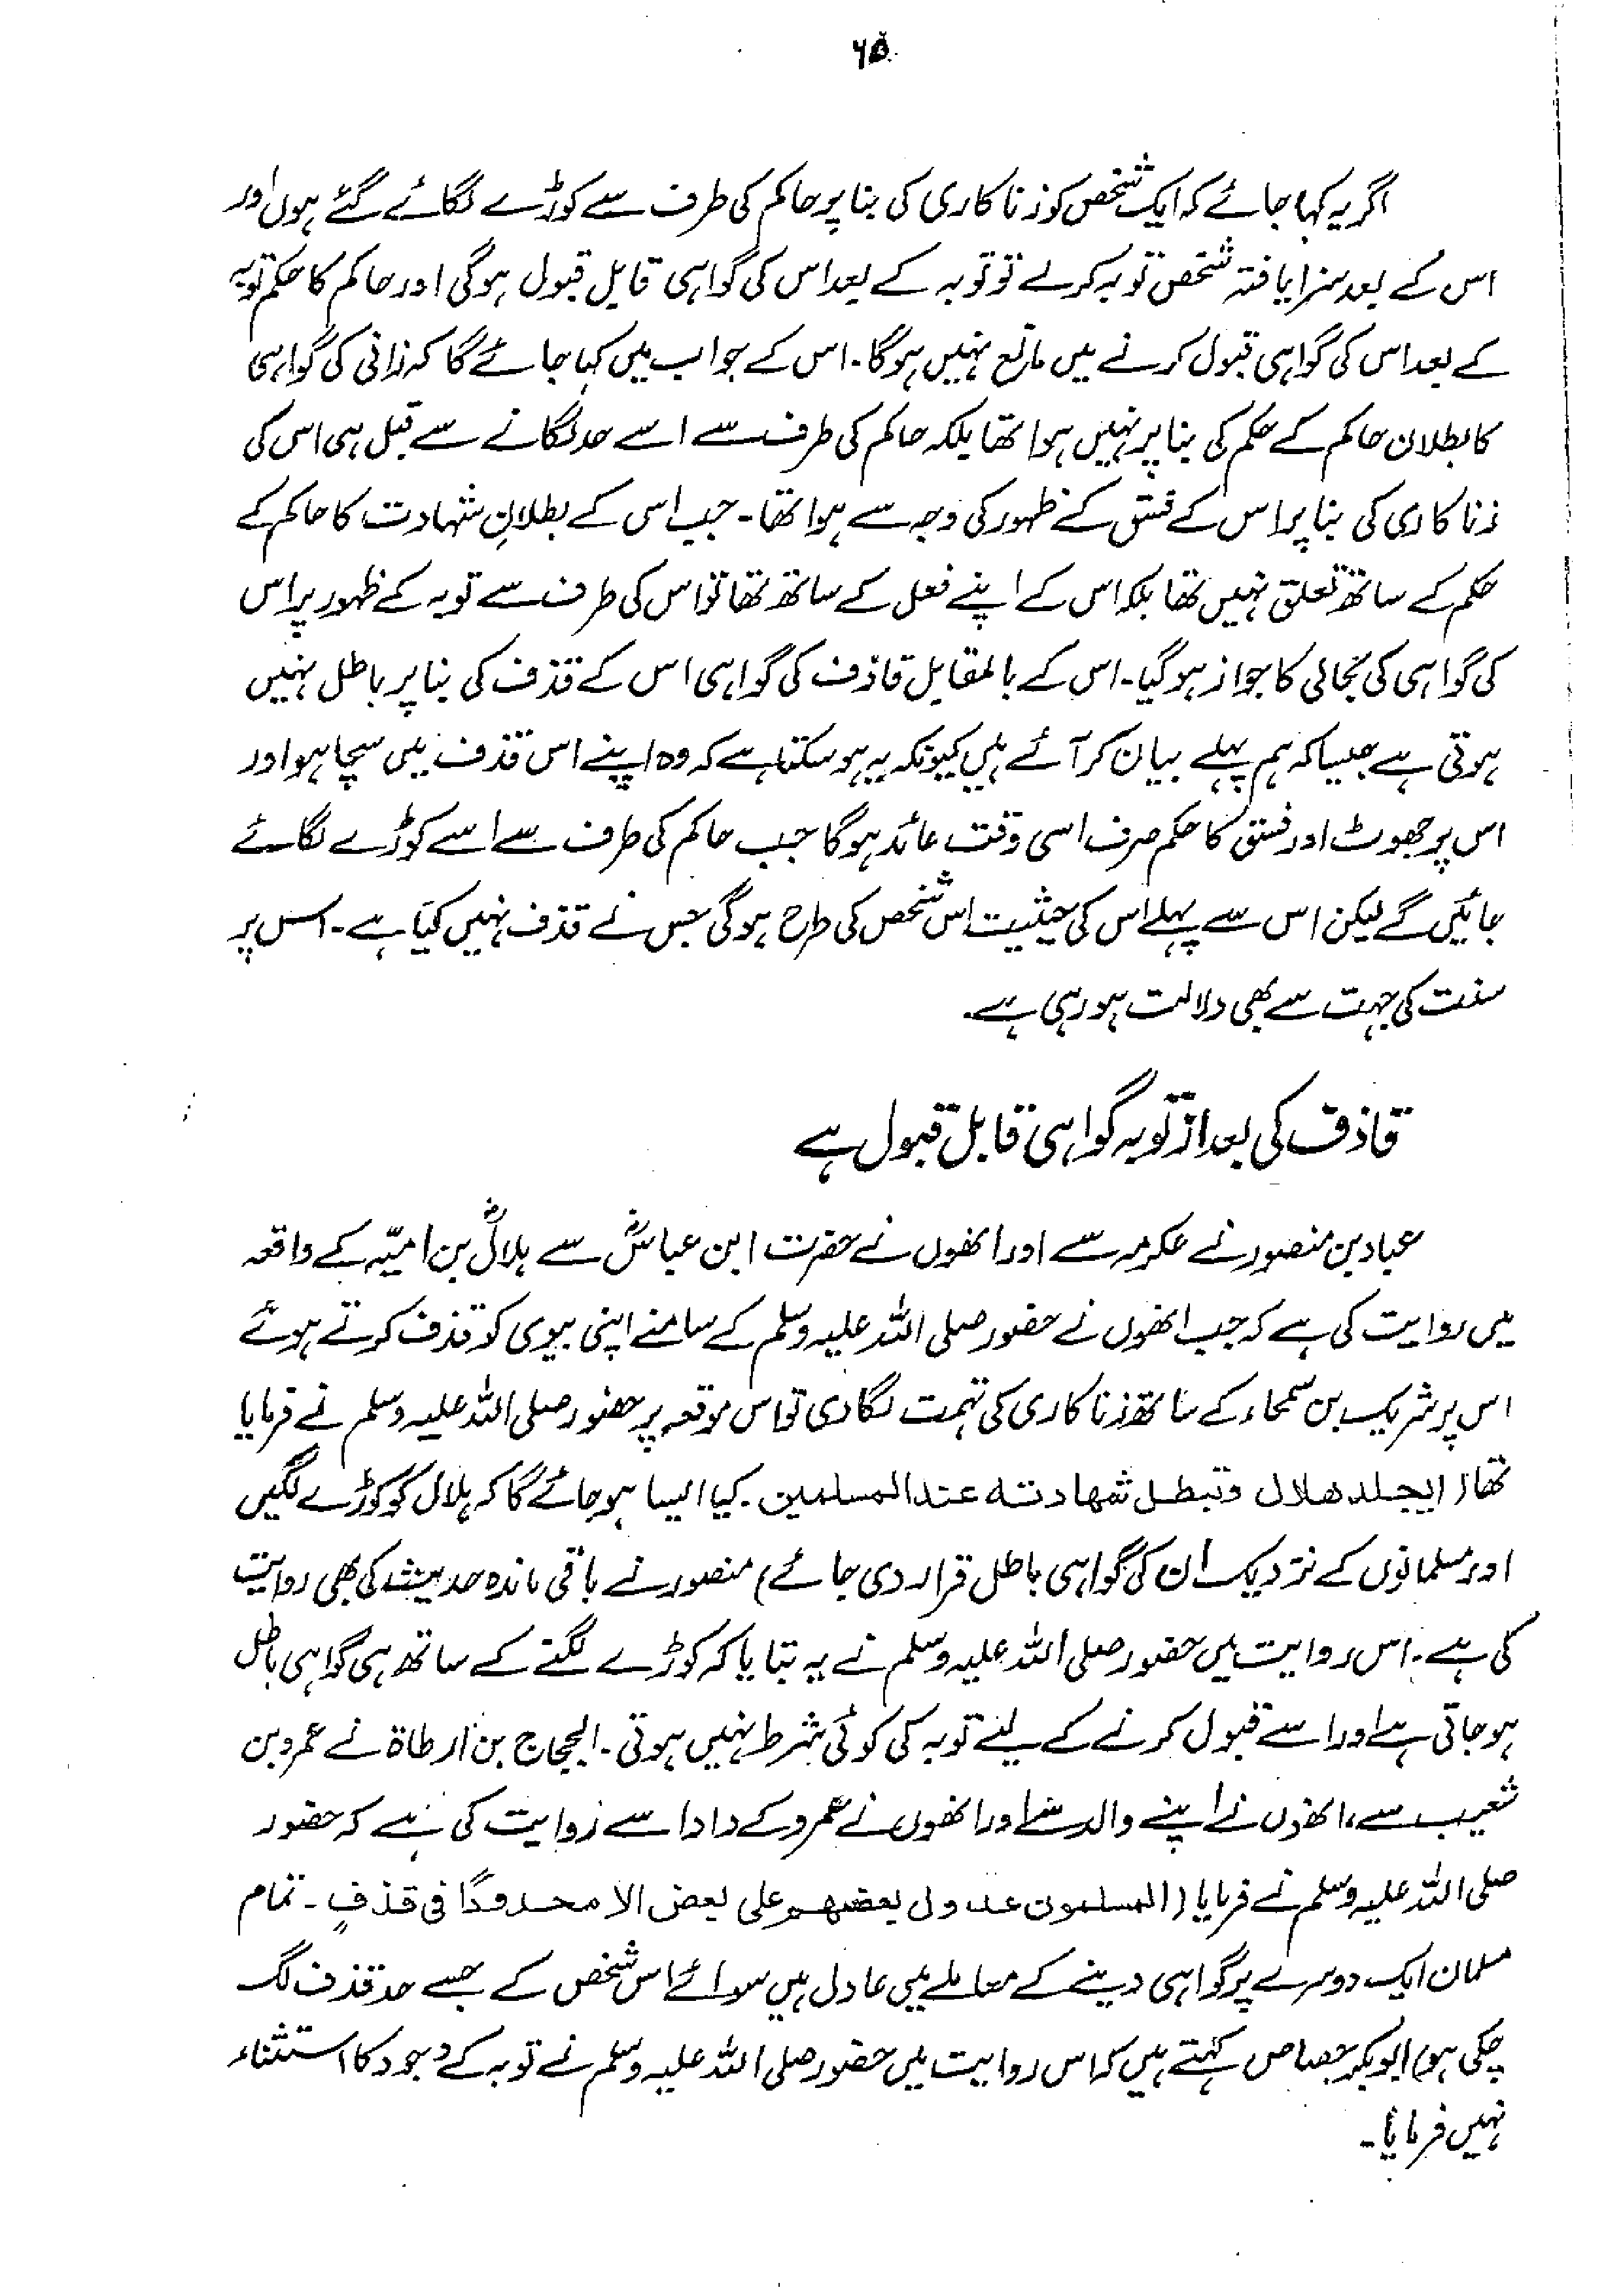 ۶۵
اگر یہ کہا جائے کہ ایک شخص کو زنا کاری کی بنا پر حاکم کی طرف سے کوڑے لگائے گئے ہوں اور
اس کے بعد سزا یافتہ شخص توبہ کر لے تو توبہ کے بعد اس کی گواہی قابل قبول ہوگی اور حاکم کا حکم توبہ
کے بعد اس کی گواہی قبول کرنے میں مانع نہیں ہوگا۔ اس کے جواب میں کہا جائے گا کہ زانی کی گواہی
کا بطلان حاکم کے حکم کی بنا پر نہیں ہوا تھا بلکہ حاکم کی طرف سے اسے حد لگانے سے قبل ہی اس کی
زنا کاری کی بنا پر اس کے فسق کے ظہور کی وجہ سے ہوا تھا۔ جب اس کے بطلانِ شہادت کا حاکم کے
حکم کے ساتھ تعلق نہیں تھا بلکہ اس کے اپنے فعل کے ساتھ تھا تو اس کی طرف سے توبہ کے ظہور پر اس
کی گواہی کی بحالی کا جواز ہو گیا۔ اس کے بالمقابل قاذف کی گواہی اس کے قذف کی بنا پر باطل نہیں
ہوتی ہے جیسا کہ ہم پہلے بیان کر آئے ہیں کیونکہ یہ ہو سکتا ہے کہ وہ اپنے اس قذف میں سچا ہو اور
اس پر جھوٹ اور فسق کا حکم صرف اسی وقت عائد ہوگا جب حاکم کی طرف سے اسے کوڑے لگائے
جائیں گے لیکن اس سے پہلے اس کی حیثیت اس شخص کی طرح ہوگی جس نے قذف نہیں کیا ہے۔ اس پر
سنت کی جہت سے بھی دلالت ہو رہی ہے۔
قاذف کی بعد از توبہ گواہی قابل قبول ہے
عباد بن منصور نے عکرمہ سے اور انھوں نے حضرت ابن عباسؓ سے ہلالؓ بن امیّہ کے واقعہ
میں روایت کی ہے کہ جب انھوں نے حضور صلی اللہ علیہ وسلم کے سامنے اپنی بیوی کو قذف کرتے ہوئے
اس پر شریک بن سمحاء کے ساتھ زنا کاری کی تہمت لگا دی تو اس موقعہ پر حضور صلی اللہ علیہ وسلم نے فرمایا
تھا (ایجلد ھلال وتبطل شھادتہ عند المسلمین۔ کیا ایسا ہو جائے گا کہ ہلال کو کوڑے لگیں
اور مسلمانوں کے نزدیک ان کی گواہی باطل قرار دی جائے) منصور نے باقی ماندہ حدیث کی بھی روایت
کی ہے۔ اس روایت میں حضور صلی اللہ علیہ وسلم نے یہ بتایا کہ کوڑے لگنے کے ساتھ ہی گواہی باطل
ہو جاتی ہے اور اسے قبول کرنے کے لیے توبہ کی کوئی شرط نہیں ہوتی۔ الحجاج بن ارطاۃ نے عمرو بن
شعیب سے، انھوں نے اپنے والد سے اور انھوں نے عمرو کے دادا سے روایت کی ہے کہ حضور
صلی اللہ علیہ وسلم نے فرمایا (المسلمون عدول بعضھم علی بعض الا محدودًا فی قذفٍ۔ تمام
مسلمان ایک دوسرے پر گواہی دینے کے معاملے میں عادل ہیں سوائے اس شخص کے جسے حد قذف لگ
چکی ہو) ابوبکر جصاص کہتے ہیں کہ اس روایت میں حضور صلی اللہ علیہ وسلم نے توبہ کے وجود کا استثناء
نہیں فرمایا۔